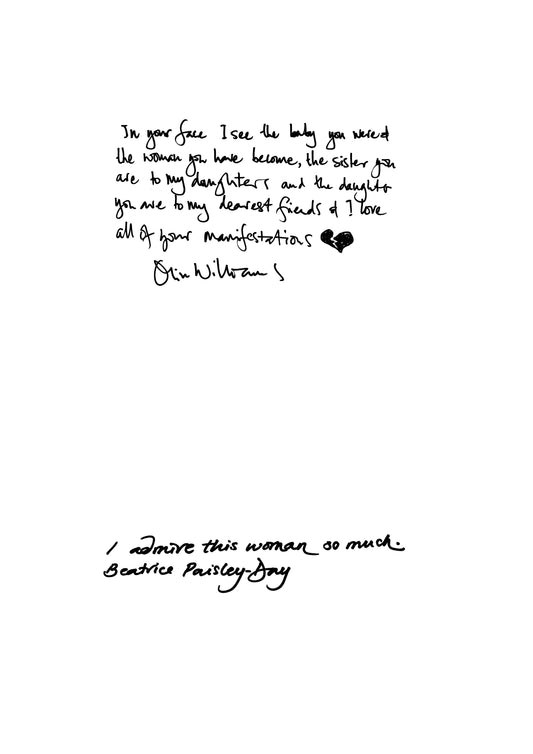 In your face I see the baby you were &
the woman you have become, the sister you
are to my daughters and the daughter
you are to my dearest friends & I love
all of your manifestations
Williams
I admire this woman so much.
Beatrice Paisley-Day